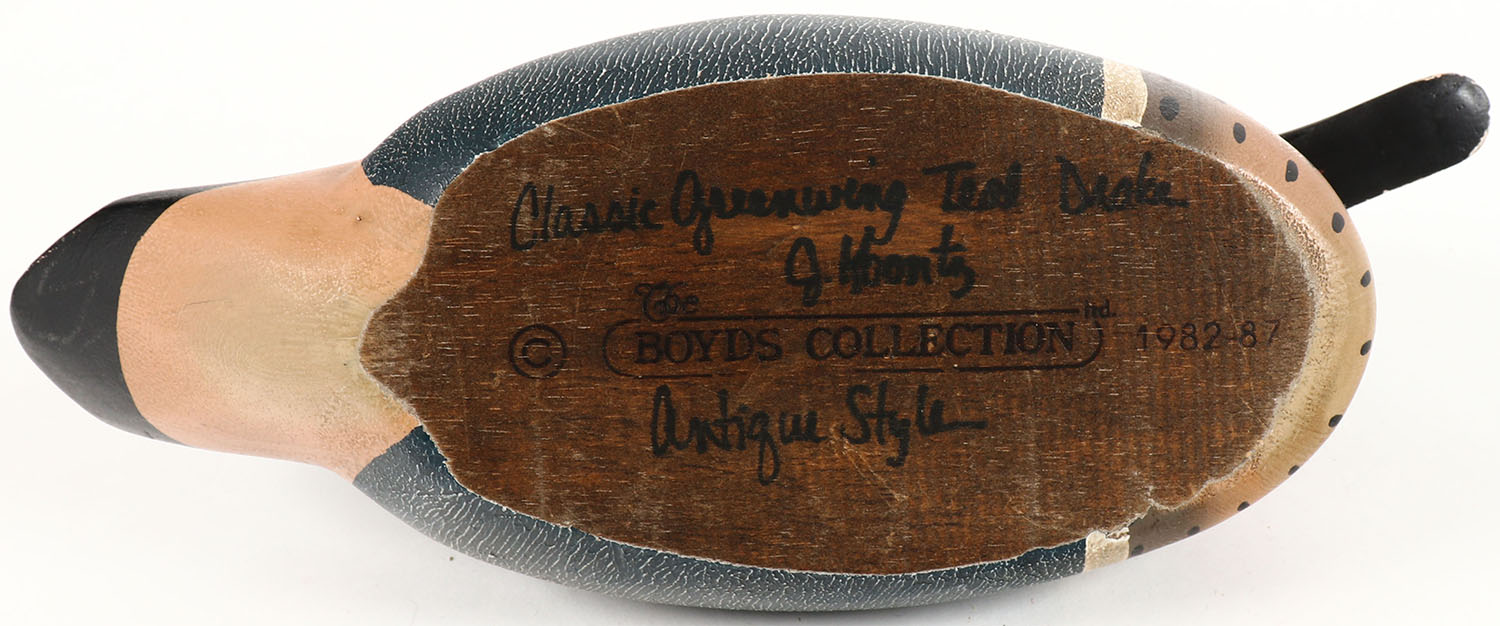 Classic Greenwing Teal Drake
J. Koontz
The
© BOYDS COLLECTION ltd. 1982-87
Antique Style